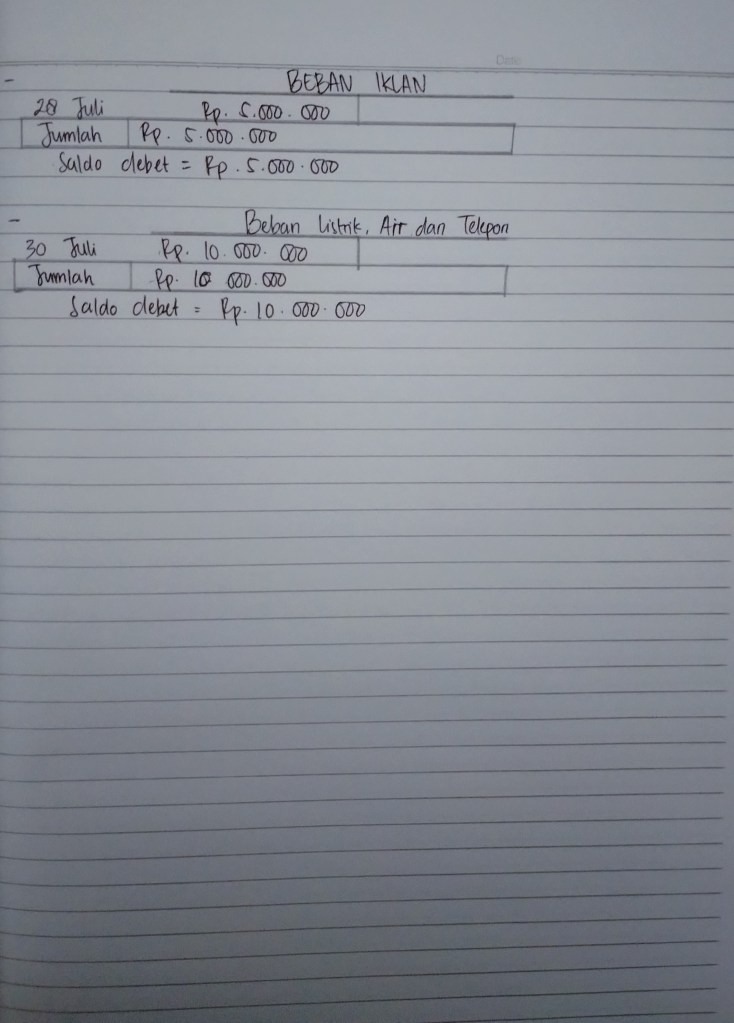 Date
- BEBAN IKLAN
28 Juli Rp. 5.000.000
Jumlah Rp. 5.000.000
Saldo debet = Rp. 5.000.000
- Beban Listrik, Air dan Telepon
30 Juli Rp. 10.000.000
Jumlah Rp. 10 000.000
Saldo debet = Rp. 10.000.000